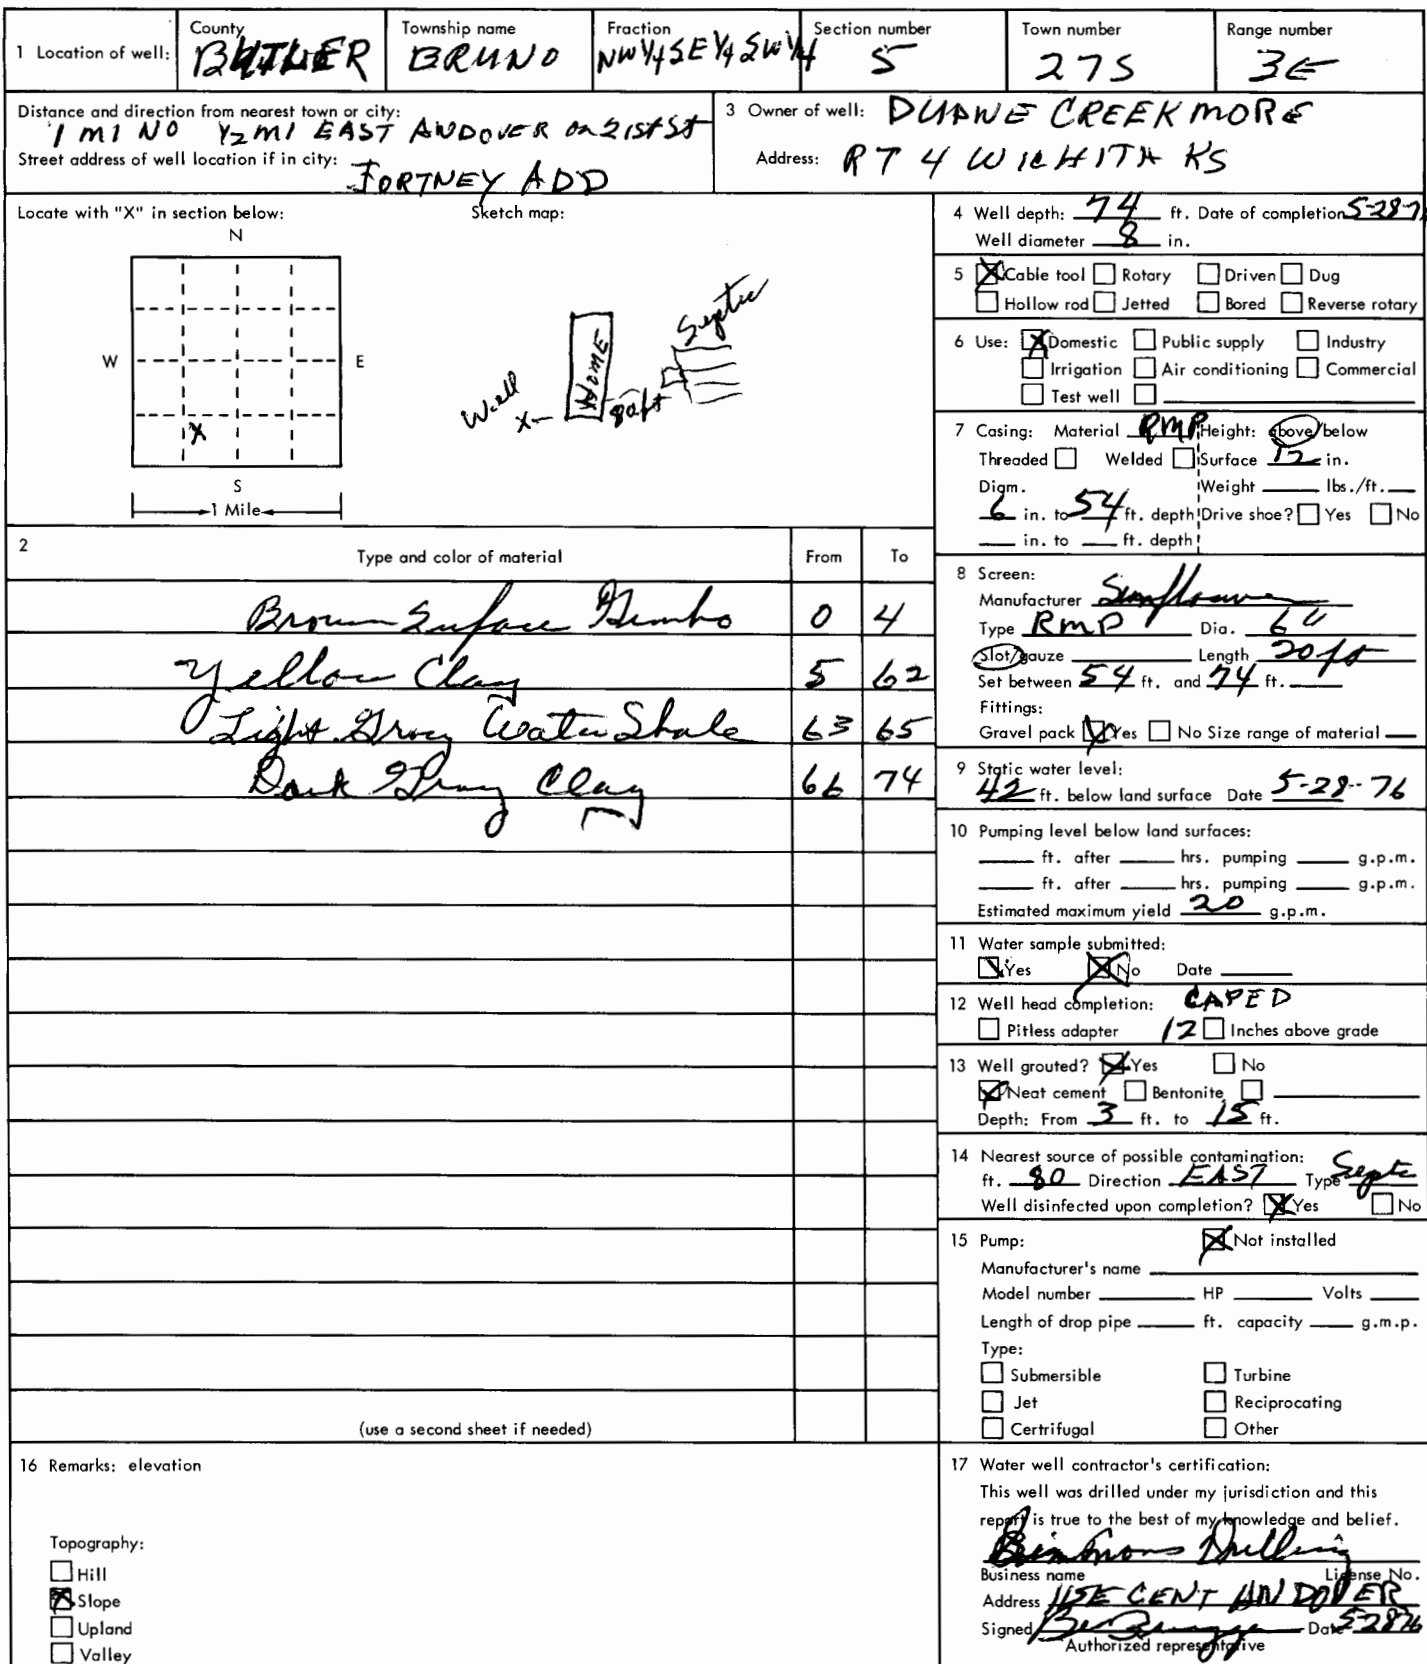 1 Location of well:
County
BUTLER
Township name
BRUNO
Fraction
NW 1/4 SE 1/4 SW 1/4
Section number
5
Town number
27S
Range number
3E
Distance and direction from nearest town or city:
1 MI NO 1/2 MI EAST ANDOVER on 21st St
Street address of well location if in city:
FORTNEY ADD
3 Owner of well: DUANE CREEKMORE
Address: RT 4 WICHITA KS
Locate with "X" in section below:
N
W
E
X
S
1 Mile
Sketch map:
Well
X
HOME
80ft
Septic
4 Well depth: 74 ft. Date of completion 5-28-7
Well diameter 8 in.
5 X Cable tool Rotary Driven Dug
Hollow rod Jetted Bored Reverse rotary
6 Use: X Domestic Public supply Industry
Irrigation Air conditioning Commercial
Test well
7 Casing: Material RMP Height: above/below
Threaded Welded Surface 12 in.
Diam. Weight lbs./ft.
6 in. to 54 ft. depth Drive shoe? Yes No
in. to ft. depth
2
Type and color of material From To
Brown Surface Gumbo 0 4
Yellow Clay 5 62
Light Gray Water Shale 63 65
Dark Gray Clay 66 74
(use a second sheet if needed)
8 Screen:
Manufacturer Sunflower
Type RMP Dia. 6"
Slot/gauze Length 20 ft
Set between 54 ft. and 74 ft.
Fittings:
Gravel pack X Yes No Size range of material
9 Static water level:
42 ft. below land surface Date 5-28-76
10 Pumping level below land surfaces:
ft. after hrs. pumping g.p.m.
ft. after hrs. pumping g.p.m.
Estimated maximum yield 20 g.p.m.
11 Water sample submitted:
Yes X No Date
12 Well head completion: CAPED
Pitless adapter 12 Inches above grade
13 Well grouted? X Yes No
X Neat cement Bentonite
Depth: From 3 ft. to 15 ft.
14 Nearest source of possible contamination:
ft. 80 Direction EAST Type Septic
Well disinfected upon completion? X Yes No
15 Pump: X Not installed
Manufacturer's name
Model number HP Volts
Length of drop pipe ft. capacity g.m.p.
Type:
Submersible Turbine
Jet Reciprocating
Certrifugal Other
16 Remarks: elevation
Topography:
Hill
X Slope
Upland
Valley
17 Water well contractor's certification:
This well was drilled under my jurisdiction and this
report is true to the best of my knowledge and belief.
Drilling
Business name License No.
Address CENT ANDOVER
Signed Date 5-28-76
Authorized representative